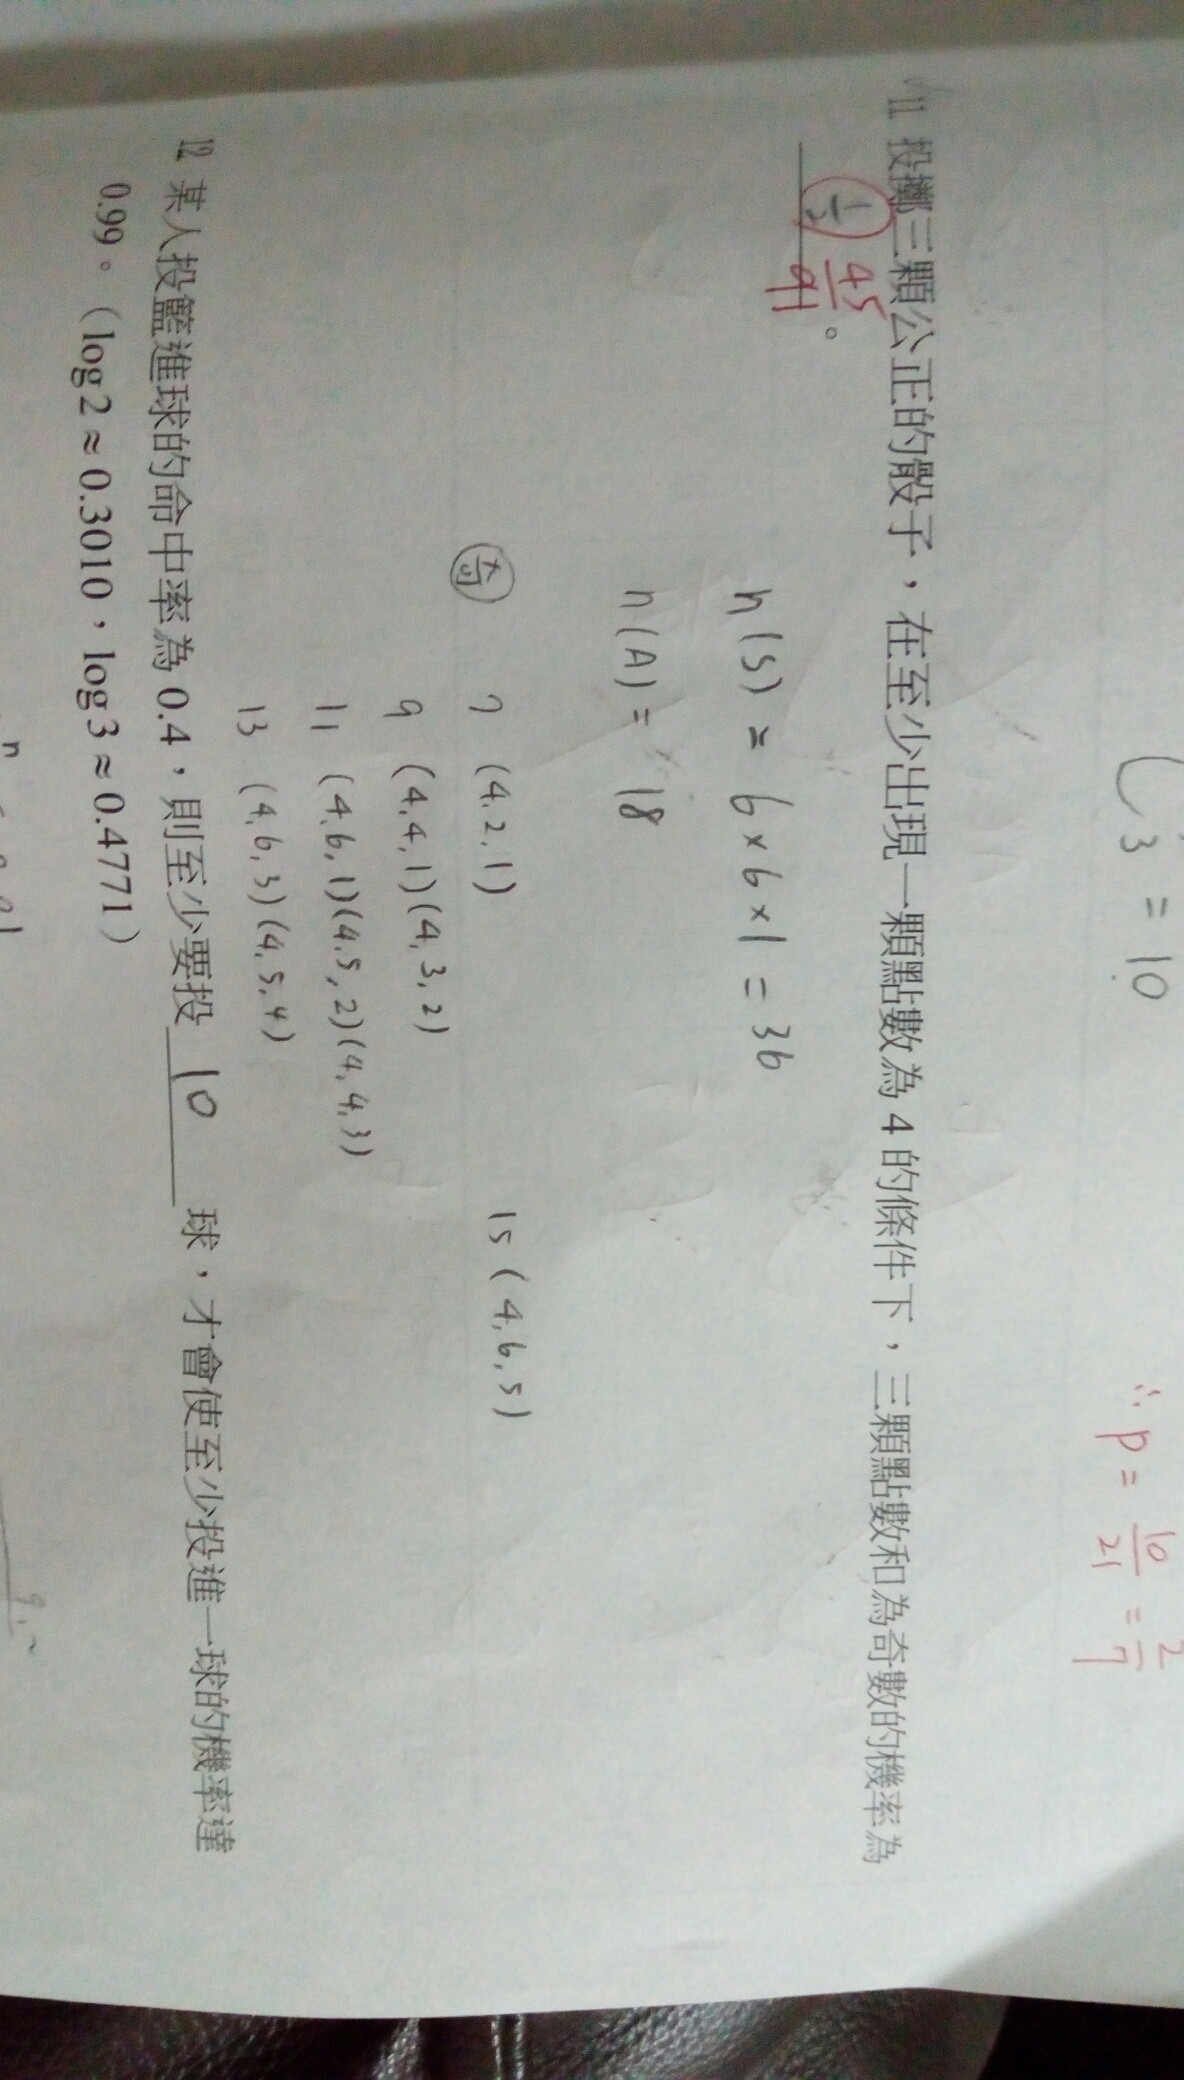 C₃ = 10
∴ P = 10/21 = 2/7
11 投擲三顆公正的骰子，在至少出現一顆點數為 4 的條件下，三顆點數和為奇數的機率為
1/2 45/91 。
n(S) = 6×6×1 = 36
n(A) = 18
奇 7 (4,2,1) 15 (4,6,5)
9 (4,4,1)(4,3,2)
11 (4,6,1)(4,5,2)(4,4,3)
13 (4,6,3)(4,5,4)
12 某人投籃進球的命中率為 0.4，則至少要投 10 球，才會使至少投進一球的機率達
0.99。（log2≈0.3010，log3≈0.4771）